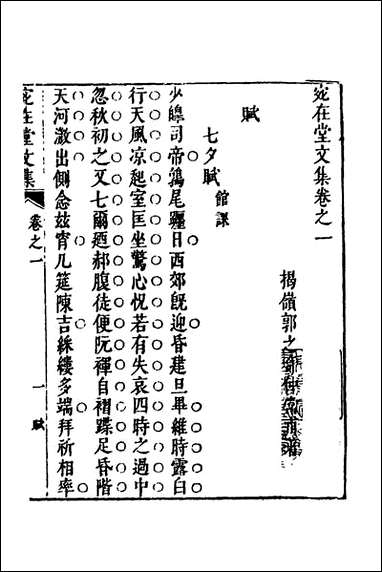 宛在堂文集卷之一
揭嶺郭之
賦
七夕賦 館課
少皥司帝鶉尾躔日西郊既迎昏建旦畢維時露白
行天風凉起室匡坐驚心怳若有失哀四時之過中
忽秋初之又七爾廼郝腹徒便阮褌自褶蹀足昏階
天河激出側念兹宵几筵陳吉綵縷多端拜祈相率
宛在堂文集
卷之一
一
賦